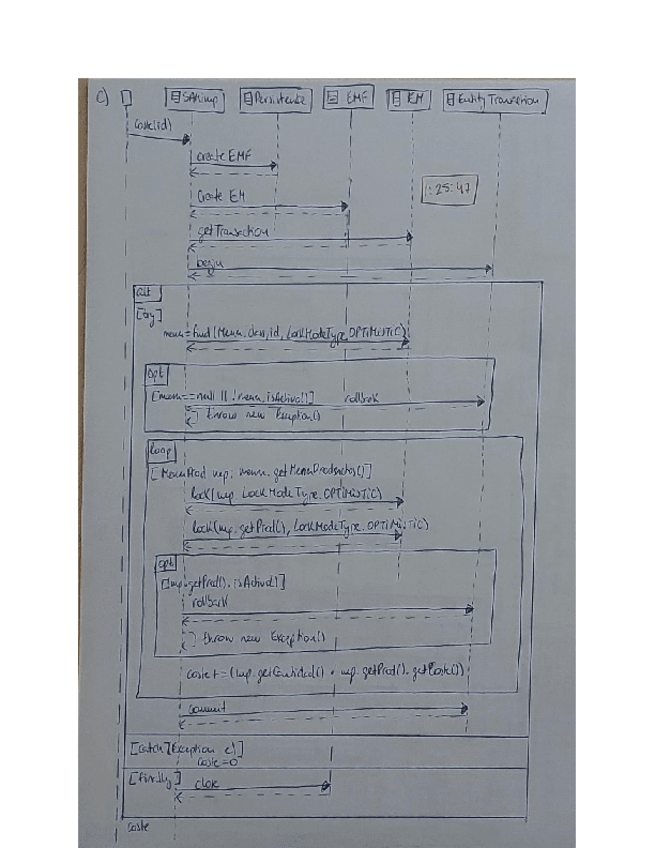 c)
SAimp
Persistence
EMF
EM
Entity Transaction
coste(id)
create EMF
Create EM
: 25:47
getTransaction
begin
alt
[try]
menu=find(Menu.class,id, LockModeType.OPTIMISTIC)
opt
[menu==null || !menu.isActivo()]
rollback
throw new Exception()
loop
[MenuProd mp: menu.getMenuProductos()]
lock(mp LockModeType.OPTIMISTIC)
lock(mp.getProd(), LockModeType.OPTIMISTIC)
opt
[!mp.getProd().isActivo()]
rollback
throw new Exception()
coste+=(mp.getCantidad() * mp.getProd().getCoste())
commit
[catch](Exception e)]
coste=0
[finally]
close
coste